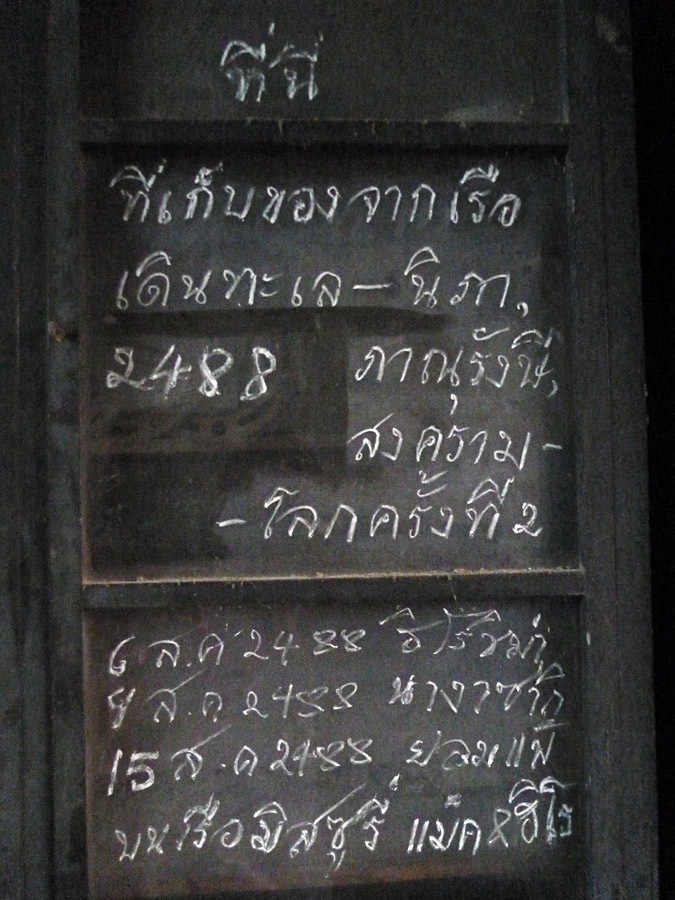 ที่นี่
ที่เก็บของจากเรือ
เดินทะเล – นิภา,
2488 ภาณุรังษี,
สงคราม -
- โลกครั้งที่ 2
6 ส.ค 2488 ฮิโรชิมา
9 ส.ค 2488 นางาซากิ
15 ส.ค 2488 ยอมแพ้
บนเรือมิสซูรี่ แม็ค & ฮิโร